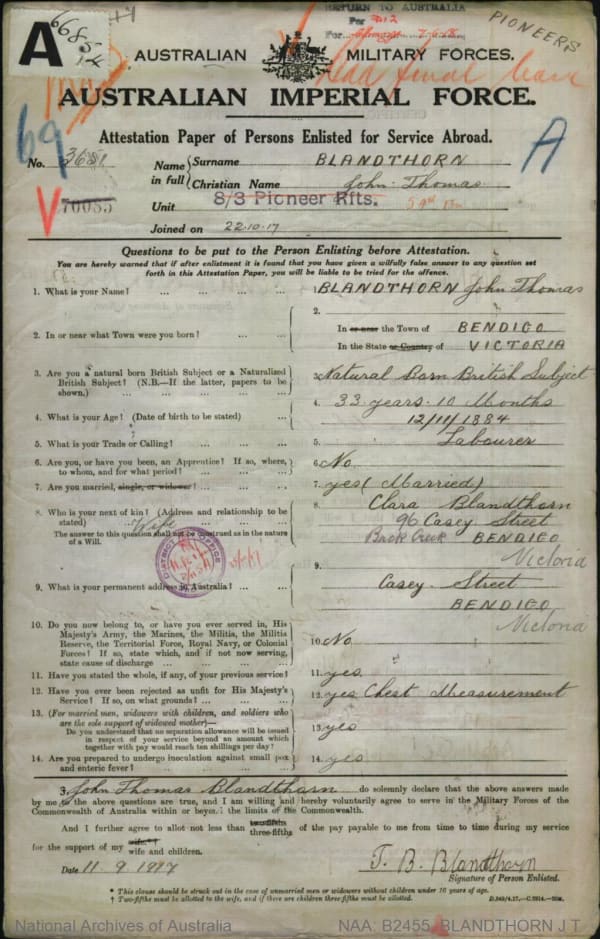 RETURN TO AUSTRALIA
Per D12
For 7-6-18
PIONEERS
A
6685
AUSTRALIAN MILITARY FORCES.
AUSTRALIAN IMPERIAL FORCE.
69
A
Attestation Paper of Persons Enlisted for Service Abroad.
No. 3681
V 70085
Name in full { Surname BLANDTHORN
Christian Name John Thomas
Unit 8/3 Pioneer Rfts.
Joined on 22.10.17
Questions to be put to the Person Enlisting before Attestation.
You are hereby warned that if after enlistment it is found that you have given a wilfully false answer to any question set
forth in this Attestation Paper, you will be liable to be tried for the offence.
1. What is your Name? ... 1. BLANDTHORN John Thomas
2. In or near what Town were you born? ... 2. In or near the Town of BENDIGO
In the State or Country of VICTORIA
3. Are you a natural born British Subject or a Naturalized
British Subject? (N.B.—If the latter, papers to be
shown.) ... 3. Natural Born British Subject
4. What is your Age? (Date of birth to be stated) ... 4. 33 years 10 Months
12/11/1884
5. What is your Trade or Calling? ... 5. Labourer
6. Are you, or have you been, an Apprentice? If so, where,
to whom, and for what period? ... 6. No
7. Are you married, single, or widower? ... 7. yes (Married)
8. Who is your next of kin? (Address and relationship to be
stated) ... Wife
The answer to this question shall not be construed as in the nature
of a Will.
8. Clara Blandthorn
96 Casey Street
Back Creek BENDIGO
Victoria
DISTRICT OFFICE
9. What is your permanent address in Australia? ... 9. Casey Street
BENDIGO
Victoria
10. Do you now belong to, or have you ever served in, His
Majesty's Army, the Marines, the Militia, the Militia
Reserve, the Territorial Force, Royal Navy, or Colonial
Forces? If so, state which, and if not now serving,
state cause of discharge ... 10. No
11. Have you stated the whole, if any, of your previous service? 11. yes
12. Have you ever been rejected as unfit for His Majesty's
Service? If so, on what grounds? ... 12. yes Chest Measurement
13. (For married men, widowers with children, and soldiers who
are the sole support of widowed mother)—
Do you understand that no separation allowance will be issued
in respect of your service beyond an amount which
together with pay would reach ten shillings per day? 13. yes
14. Are you prepared to undergo inoculation against small pox
and enteric fever? ... 14. yes
I, John Thomas Blandthorn do solemnly declare that the above answers made
by me to the above questions are true, and I am willing and hereby voluntarily agree to serve in the Military Forces of the
Commonwealth of Australia within or beyond the limits of the Commonwealth.
And I further agree to allot not less than two-fifths three-fifths of the pay payable to me from time to time during my service
for the support of my wife* † wife and children.
Date 11.9.1917
J. B. Blandthorn
Signature of Person Enlisted.
* This clause should be struck out in the case of unmarried men or widowers without children under 16 years of age.
† Two-fifths must be allotted to the wife, and if there are children three-fifths must be allotted.
D.349/4.17.—C.3914.—20M.
National Archives of Australia
NAA: B2455, BLANDTHORN J T